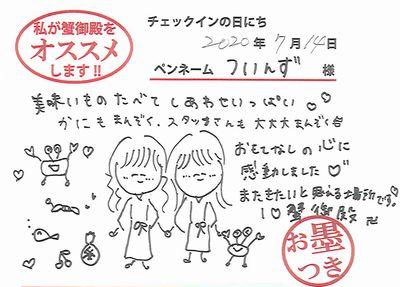 私が蟹御殿を
オススメ
します!!
チェックインの日にち
2020年7月14日
ペンネーム ついんず 様
美味いもの たべて しあわせいっぱい
かにも まんぞく、スタッフさんも 大大大まんぞく
おもてなしの心に
感動しました
またきたいと思える場所です。
I♡蟹御殿 卍
お墨
つき